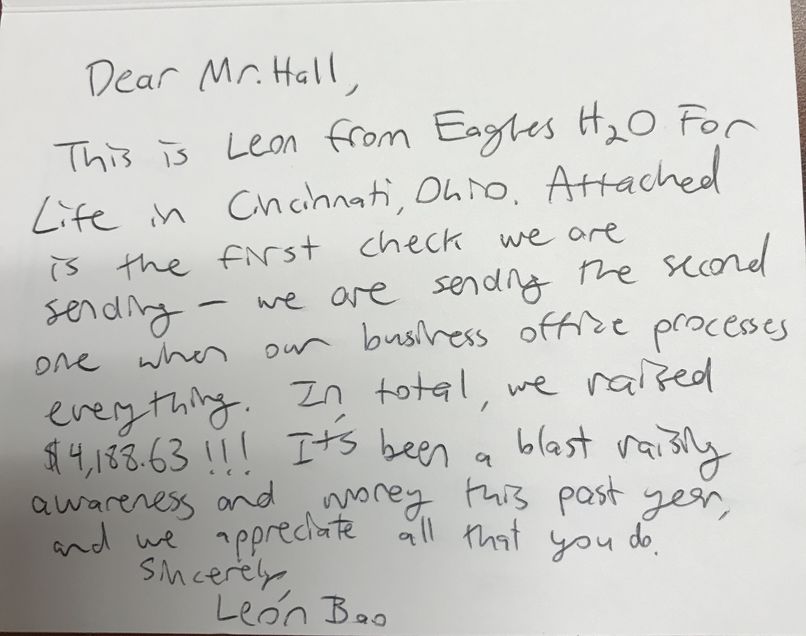 Dear Mr. Hall,
This is Leon from Eagles H₂O For
Life in Cincinnati, Ohio. Attached
is the first check we are
sending – we are sending the second
one when our business office processes
everything. In total, we raised
$4,188.63 !!! It's been a blast raising
awareness and money this past year,
and we appreciate all that you do.
Sincerely,
León Bao